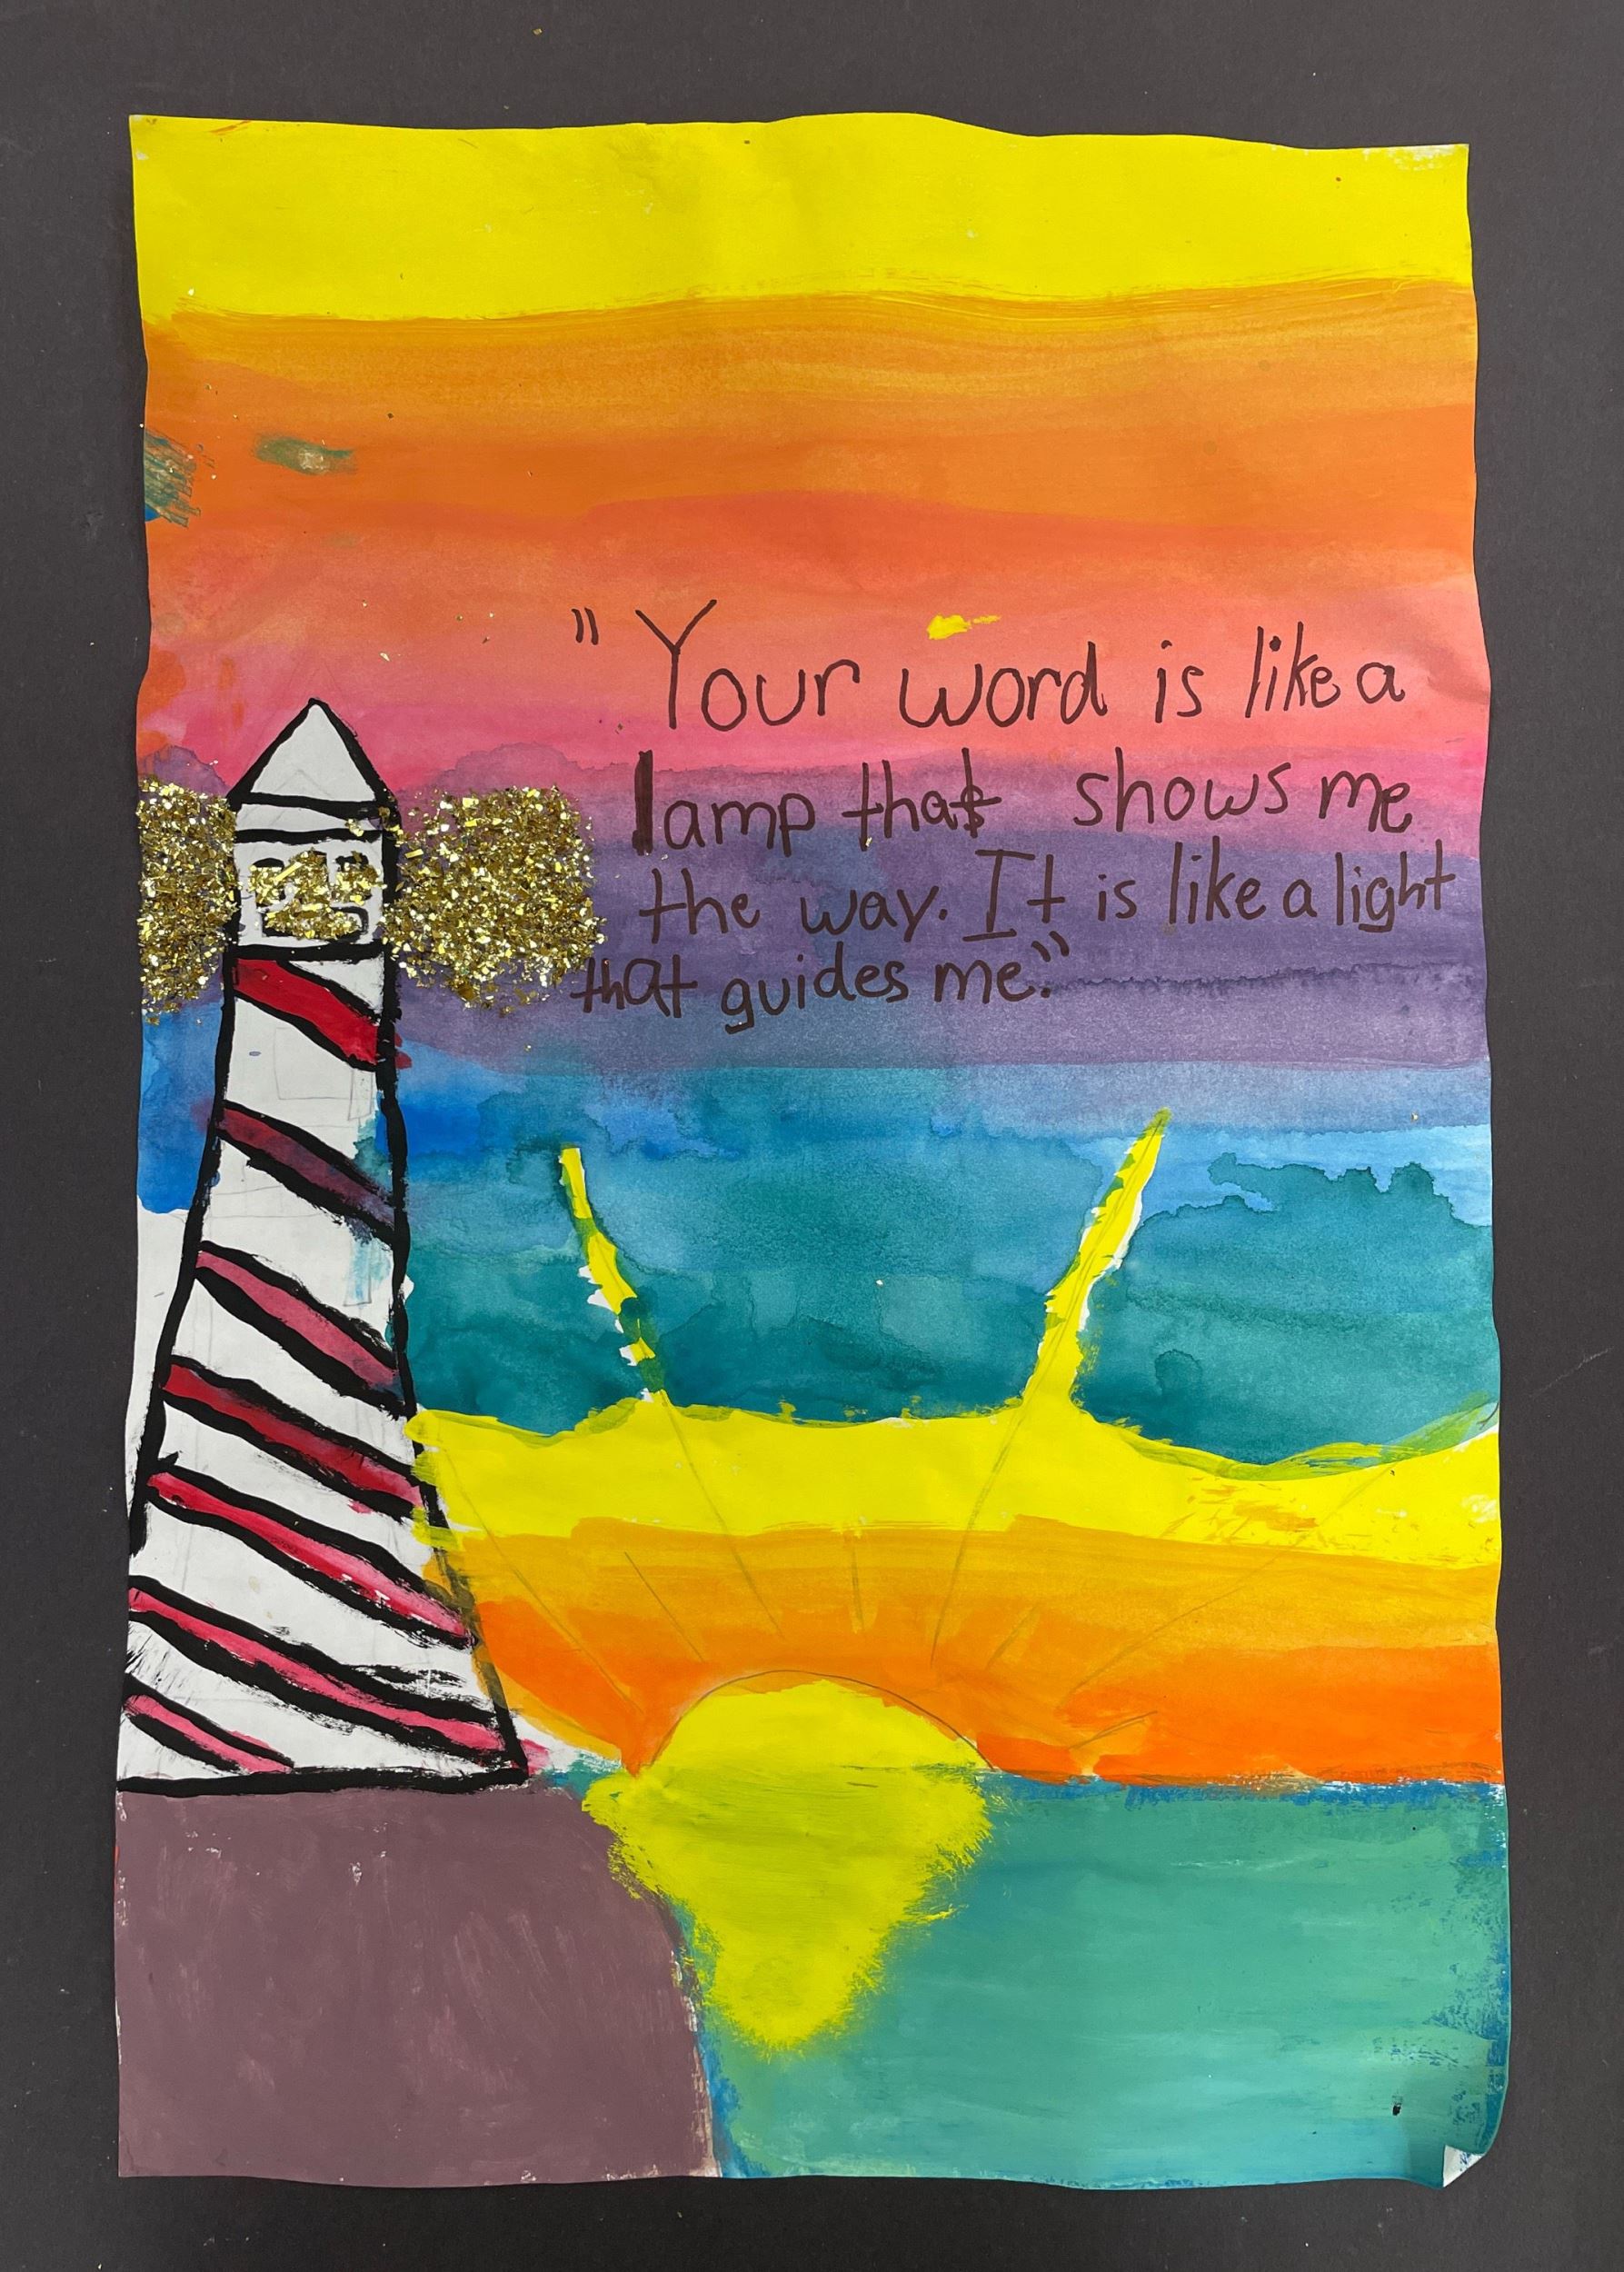 "Your word is like a
lamp that shows me
the way. It is like a light
that guides me."